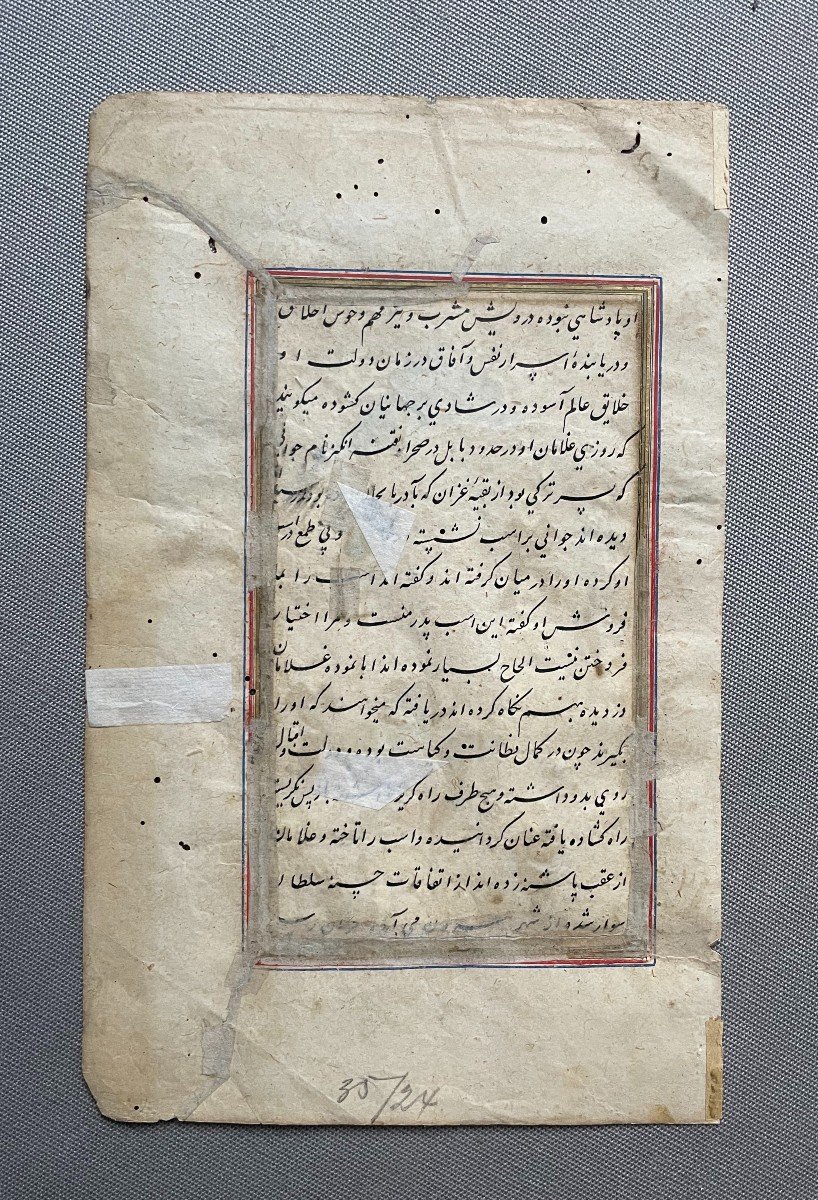 او پادشاهي بوده درویش مشرب و تیز فهم و خوش اخلاق
و دریابندهٔ اسرار نفس و آفاق در زمان دولت او
خلایق عالم آسوده و در شادي بر جهانیان کشوده میکویند
که روزي غلامان او در حدود بابل در صحرا بفتنه انکیز نام جواني
که پسر ترکي بود از بقیهٔ غزان که بآذربایجان بود
دیده اند جواني بر اسب نشسته و پي طمع در اسب
او کرده او را در میان کرفته اند و کفته اند اسب را بما
فروش او کفته این اسب پدر منست و مرا اختیار
فروختن نیست الحاح بسیار نموده اند ابا نموده غلامان
دزدیده بهم نکاه کرده اند دریافته که میخواهند که او را
بکیرند چون در کمال فطانت و کیاست بوده و دولت و اقبال
روي بدو داشته و هیچ طرف راه کریز باز پس نکریسته
راه کشاده یافته عنان کردانیده و اسب را تاخته و غلامان
از عقب پاشنه زده اند از اتفاقات حسنه سلطان
سوار شده از شهر بیرون مي آمد
35/24